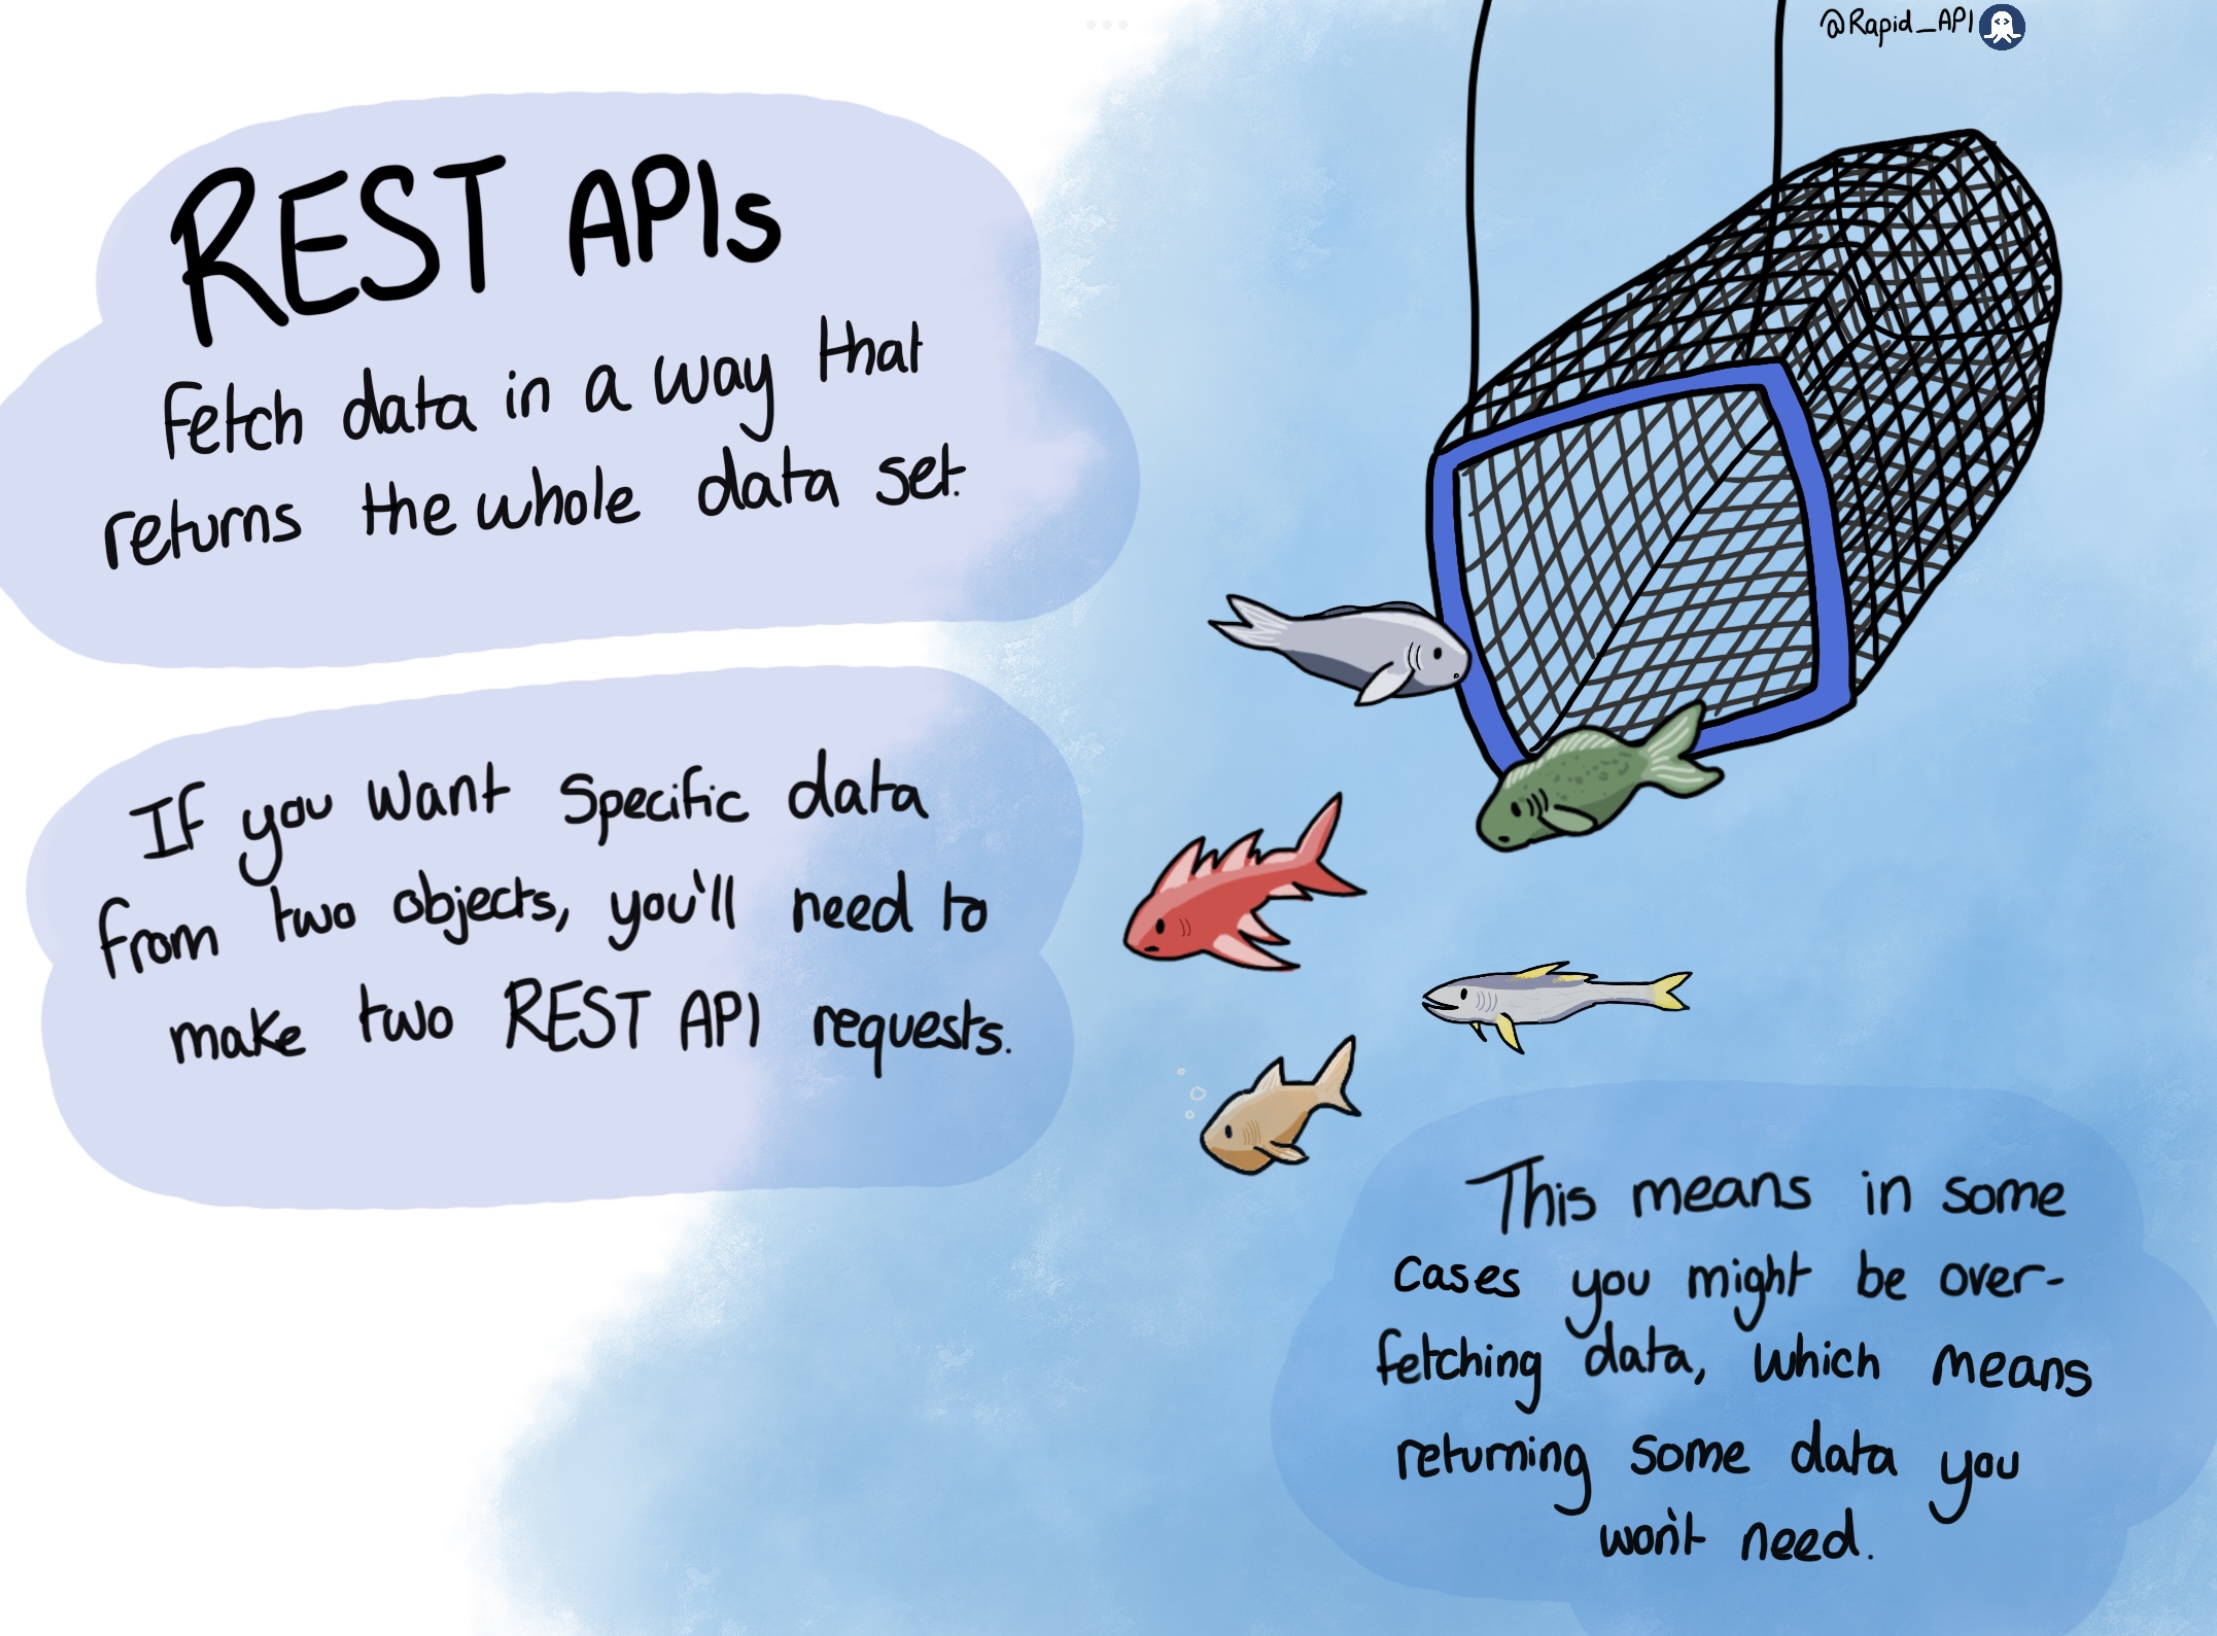 @Rapid_API
REST APIs
fetch data in a way that
returns the whole data set.
If you want specific data
from two objects, you'll need to
make two REST API requests.
This means in some
cases you might be over-
fetching data, which means
returning some data you
won't need.